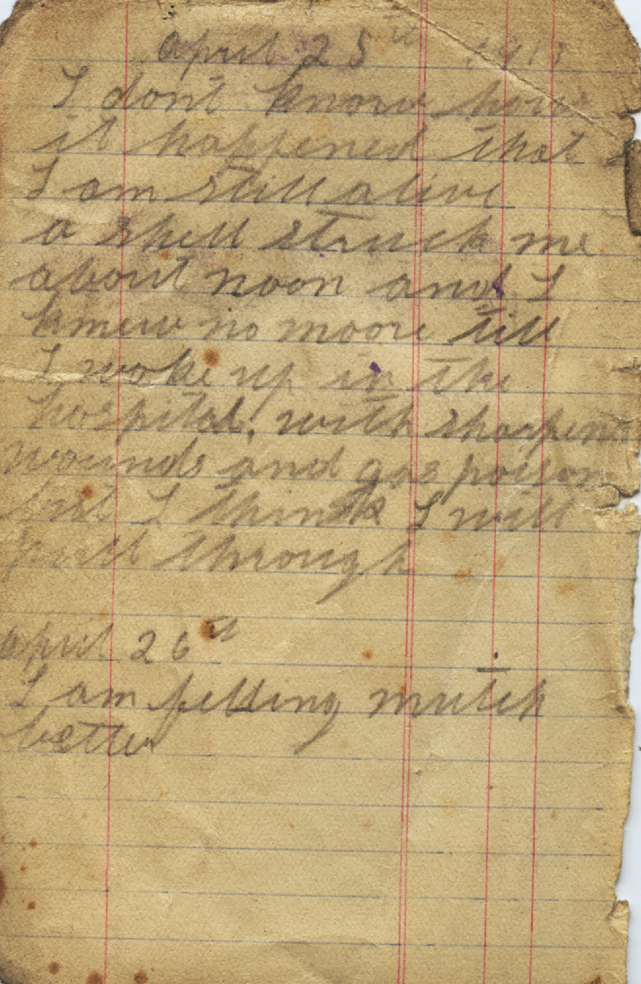 April 25th 1915
I dont know how
it happened that
I am still alive
a shell struck me
about noon and I
knew no moore till
I woke up in the
hospital, with sharpen
wounds and gas poison
but I think I will
pull through
April 26th
I am felling mutch
better